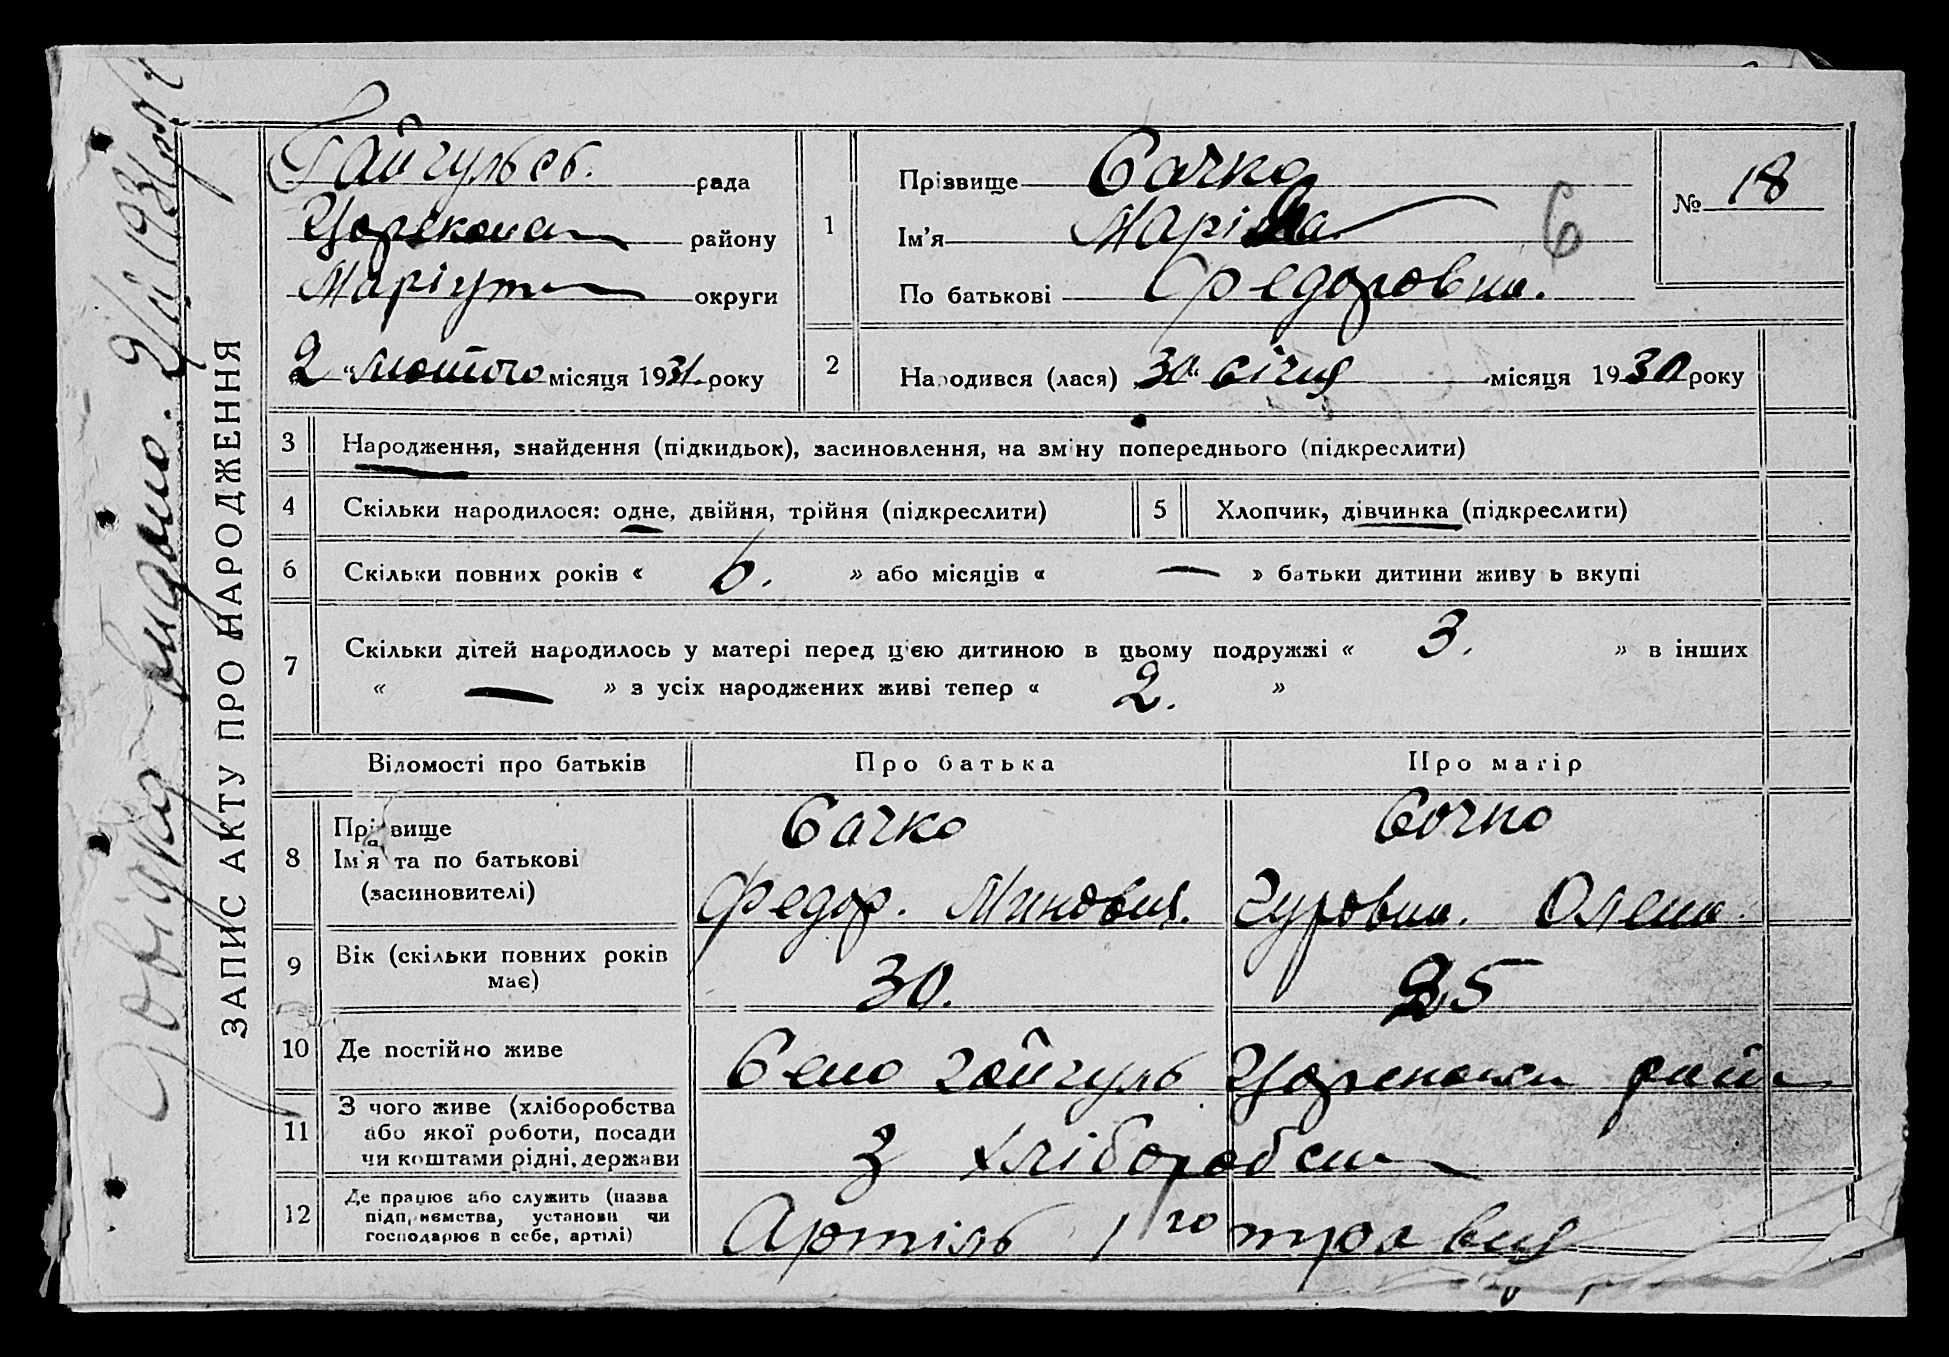 Гайгульсь. рада
Царекон району
Маріуп округи
2 „ Лютого місяця 1931. року
Довідку видано. 2/II 1931р.
ЗАПИС АКТУ ПРО НАРОДЖЕННЯ
1
Прізвище Сачко
Ім'я Марія
По батькові Федоровна.
6
№ 18
2
Народився (лася) 30" січня місяця 1930 року
3 Народження, знайдення (підкидьок), засиновлення, на зміну попереднього (підкреслити)
4 Скільки народилося: одне, двійня, трійня (підкреслити)
5 Хлопчик, дівчинка (підкреслити)
6 Скільки повних років « 6. » або місяців « — » батьки дитини живуть вкупі
7 Скільки дітей народилось у матері перед цією дитиною в цьому подружжі « 3. » в інших
« — » з усіх народжених живі тепер « 2. »
Відомості про батьків Про батька Про матір
8 Прізвище
Ім'я та по батькові
(засиновителі)
Сачко
Федор. Минович.
Сачко
Гуровна. Олена
9 Вік (скільки повних років
має)
30.
25
10 Де постійно живе
Село Гайгуль Царекон рай
11 З чого живе (хліборобства
або якої роботи, посади
чи коштами рідні, держави
З хліборобс
12 Де працює або служить (назва
підприємства, установи чи
господарює в себе, артілі)
Артіль 1го травня